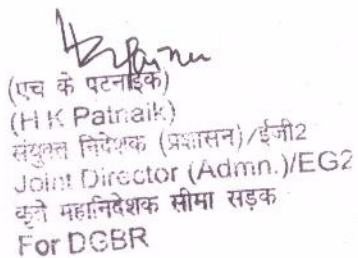 (एच के पटनाईक)
(H K Patnaik)
संयुक्त निदेशक (प्रशासन)/ईजी2
Joint Director (Admn.)/EG2
कृते महानिदेशक सीमा सड़क
For DGBR